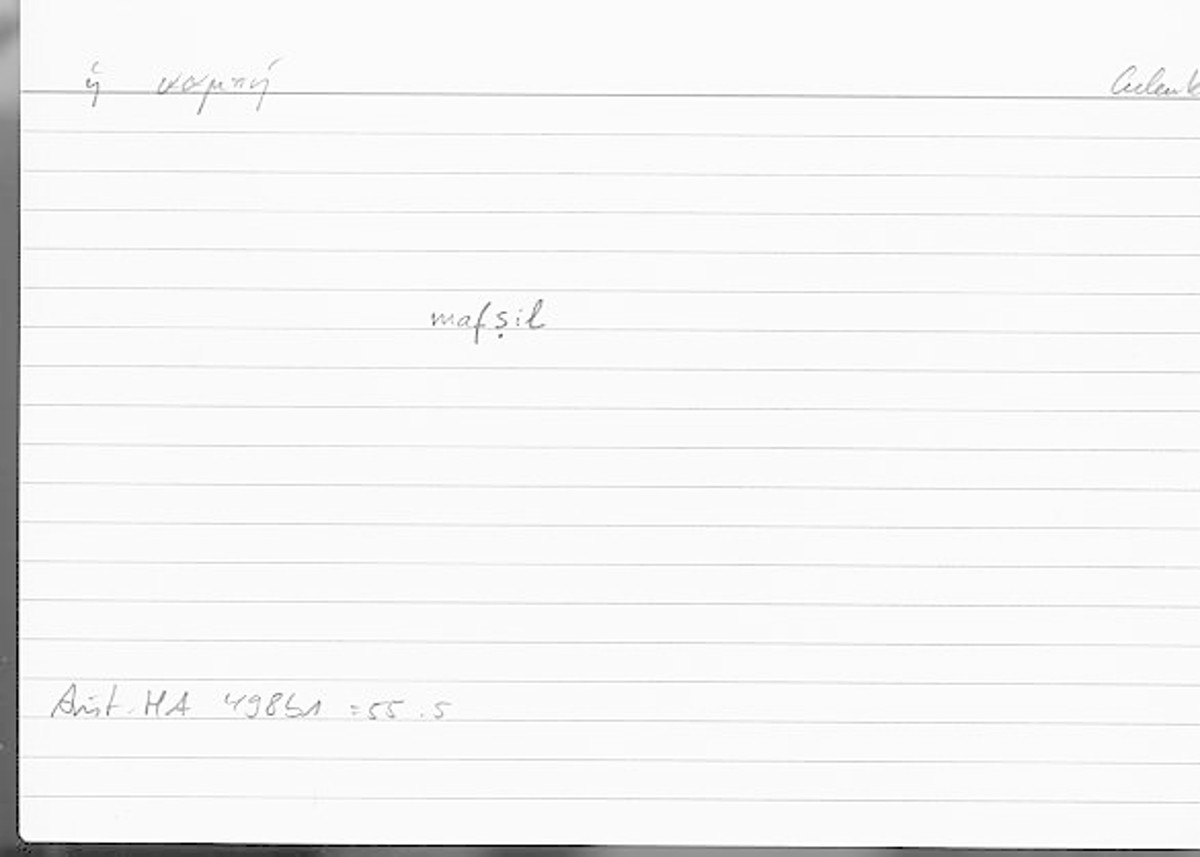 ἡ καμπή Gelenk
mafṣil
Arist. HA 498b1 = 55.5